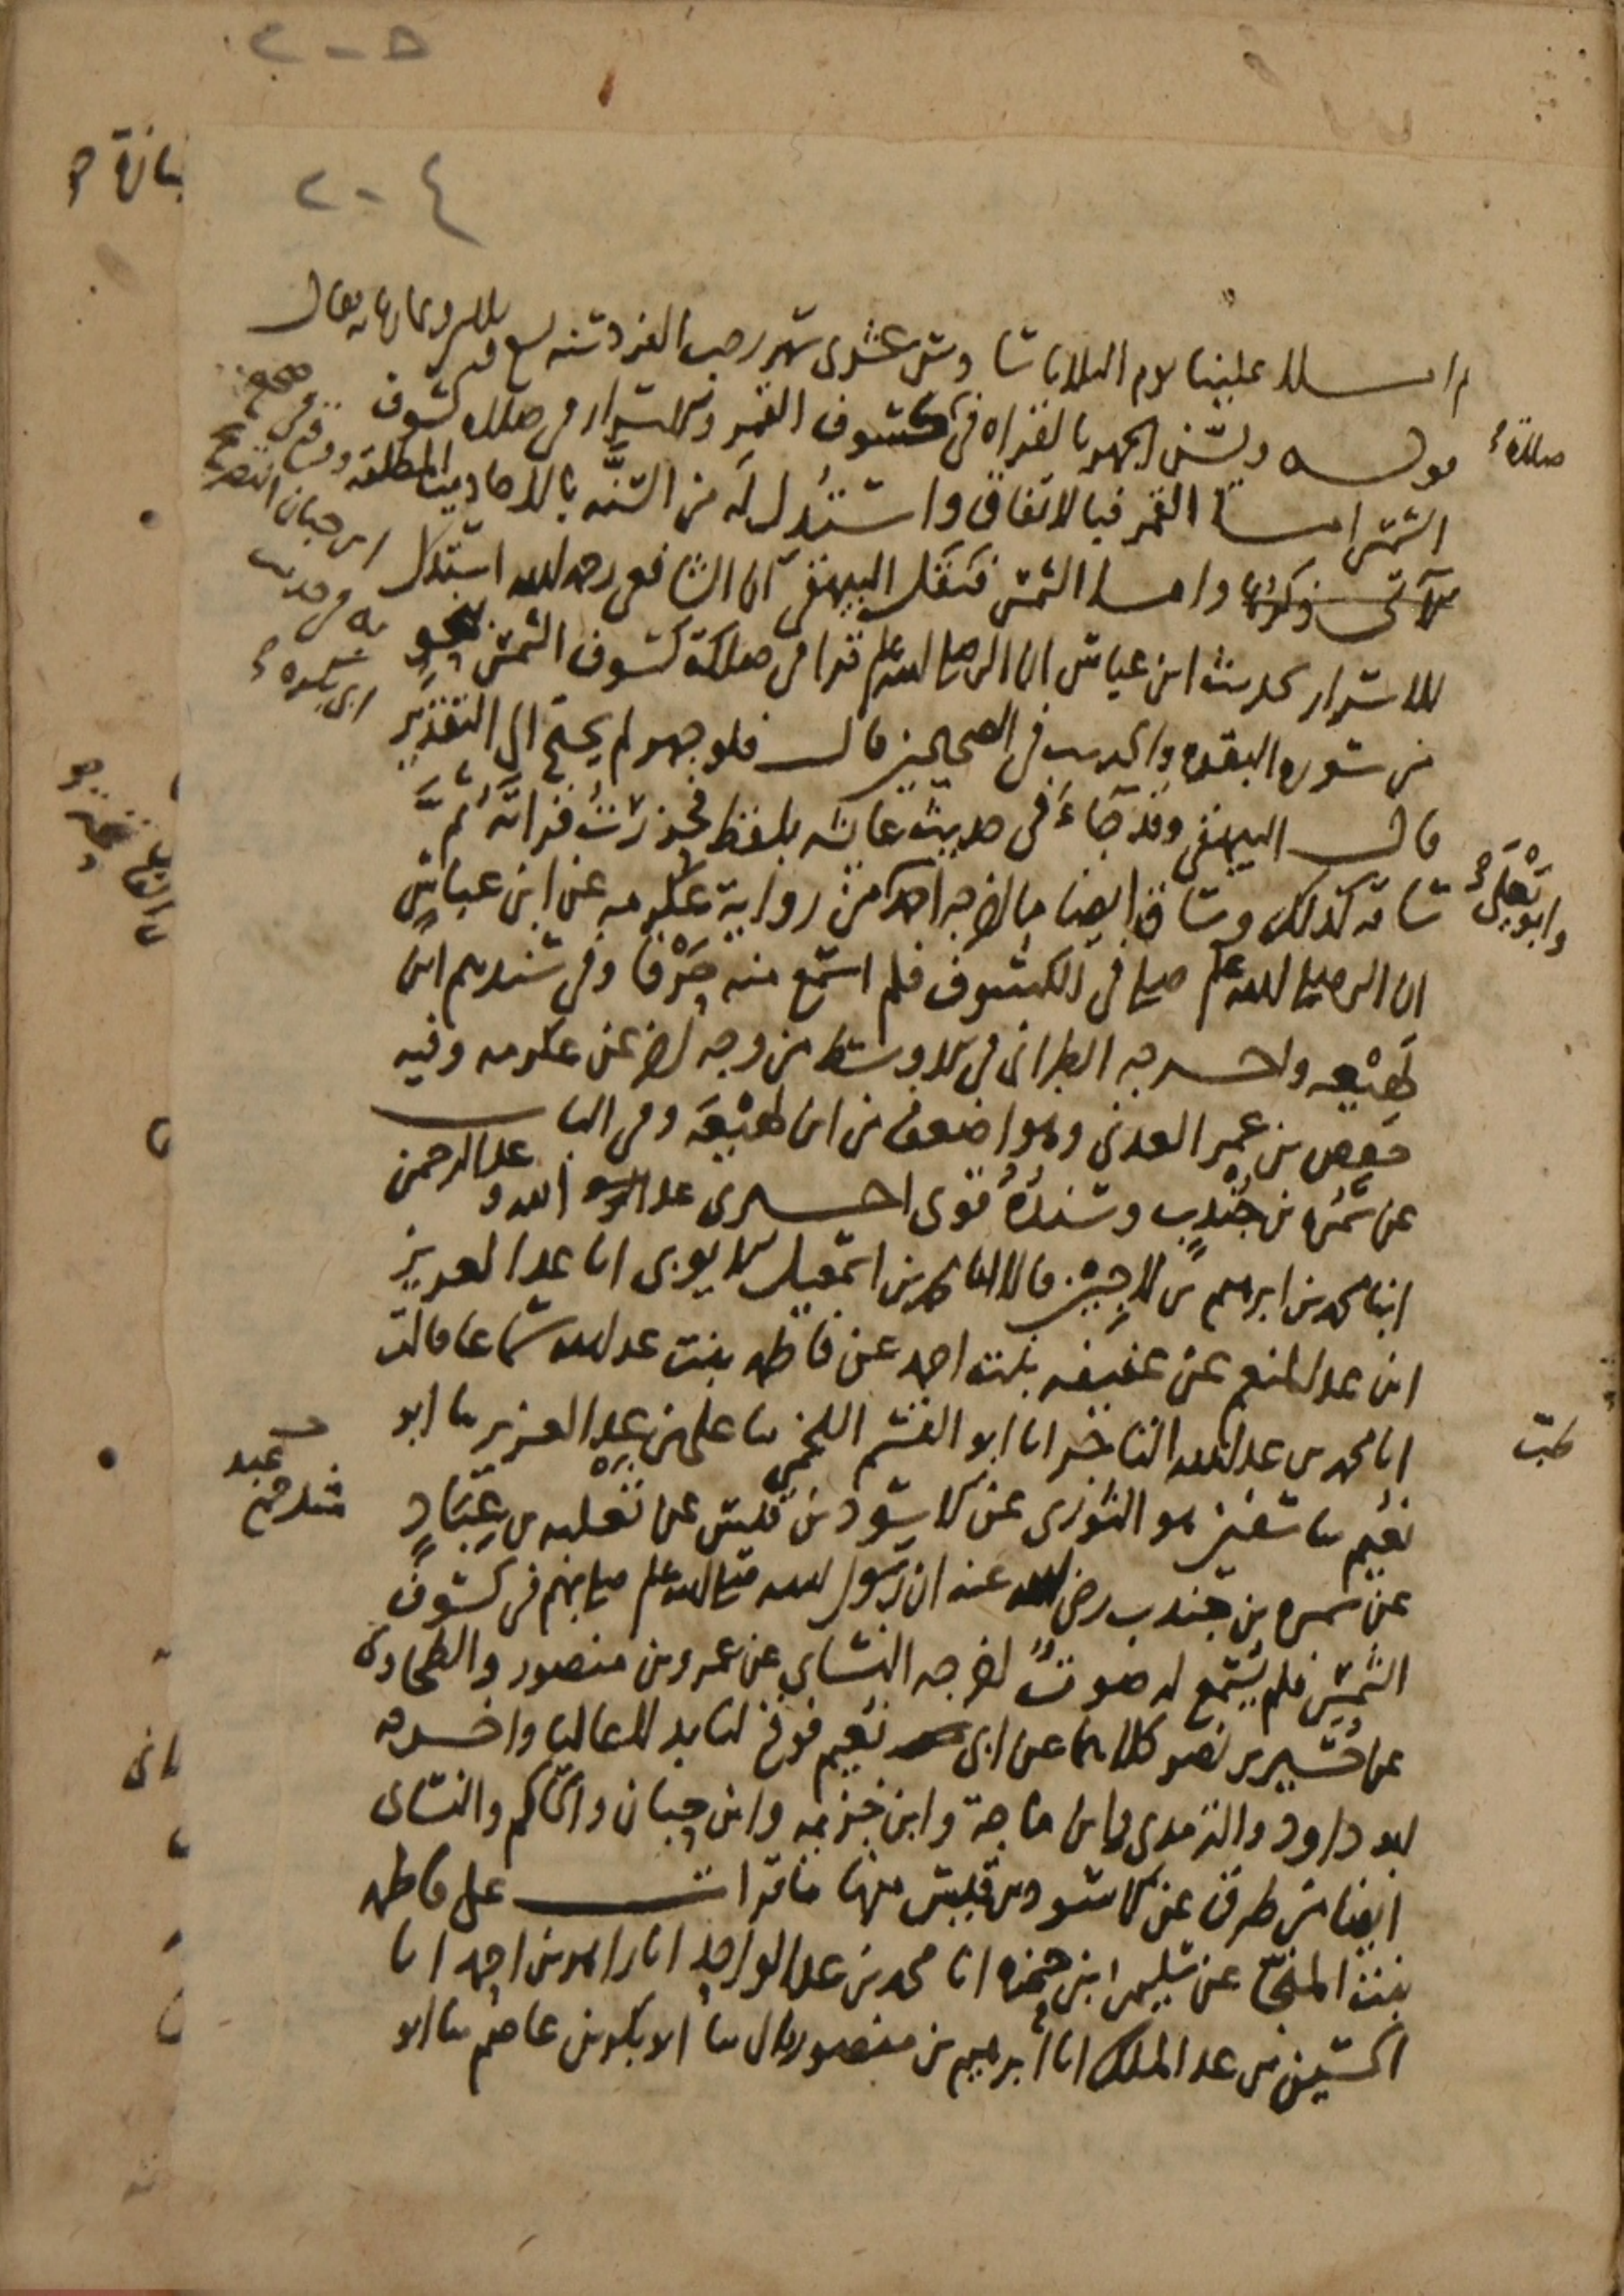 ٢٠٥
٢٠٤
ثم املى علينا يوم الثلاثاء سادس عشرى شهر رجب الفرد سنة تسع
قوله ويسن الجهر بالقراه فى كسوف القمر والاسرار فى صلاه كسوف
صلاة
الشمس اما القمر فبالاتفاق واستدل له من السنه بالاحاديث المطلقه
ابن حبان التصريح
به فى حديث
ابى بكره
واما الشمس فنقل البيهقى ان الشافعى رحمه الله استدل
للاسرار بحديث ابن عباس ان النبى صلى الله عليه وسلم قرا فى صلاة كسوف الشمس بنحو
من سوره البقره والحديث فى الصحيحين قال فلو جهر لم يحتج الى التقدير
قال البيهقى وقد جاء فى حديث عائشه بلفظ فحزرت قراته ثم
ساقه كذلك وساق ايضا ما اخرجه احمد من رواية عكرمه عن ابن عباس
وابو يعلى
ان النبى صلى الله عليه وسلم صلى فى الكسوف فلم اسمع منه حرفا وفى سندهم ابن
لهيعه واخرجه الطبرانى فى الاوسط من وجه اخر عن عكرمه وفيه
حفص بن عمر العدنى وهو اضعف من ابن لهيعة وفى الباب
عن سمره بن جندب وسنده قوى اخبرنى عبد الله و عبد الرحمن
ابنا محمد بن ابرهيم بن لاجين قالا انا محمد بن اسمعيل الايوبى انا عبد العزيز
ابن عبد المنعم عن عفيفه بنت احمد عن فاطمه بنت عبد الله سماعا قالت
انا محمد بن عبد الله التاجر انا ابو القسم اللخمى نا على بن عبد العزيز نا ابو
طب
نعيم نا سفين هو الثورى عن الاسود بن قيس عن ثعلبه بن عباد
عن سمره بن جندب رضى الله عنه ان رسول الله صلى الله عليه وسلم صلى بهم فى كسوف
الشمس فلم يسمع له صوت اخرجه النساى عن عمرو بن منصور والطحاوى
عن حسين بن نصر كلاهما عن ابى نعيم فوقع لنا بدلا عاليا واخرجه
ابو داود والترمذى وابن ماجة وابن خزيمه وابن حبان والحاكم والنساى
ايضا من طرق عن الاسود بن قيس منها ما قرات على فاطمه
بنت المنجا عن سليمن ابن حمزه انا محمد بن عبد الواحد انا زاهر بن احمد انا
الحسين بن عبد الملك انا ابرهيم بن منصور قال نا ابو بكر بن عاصم نا ابو